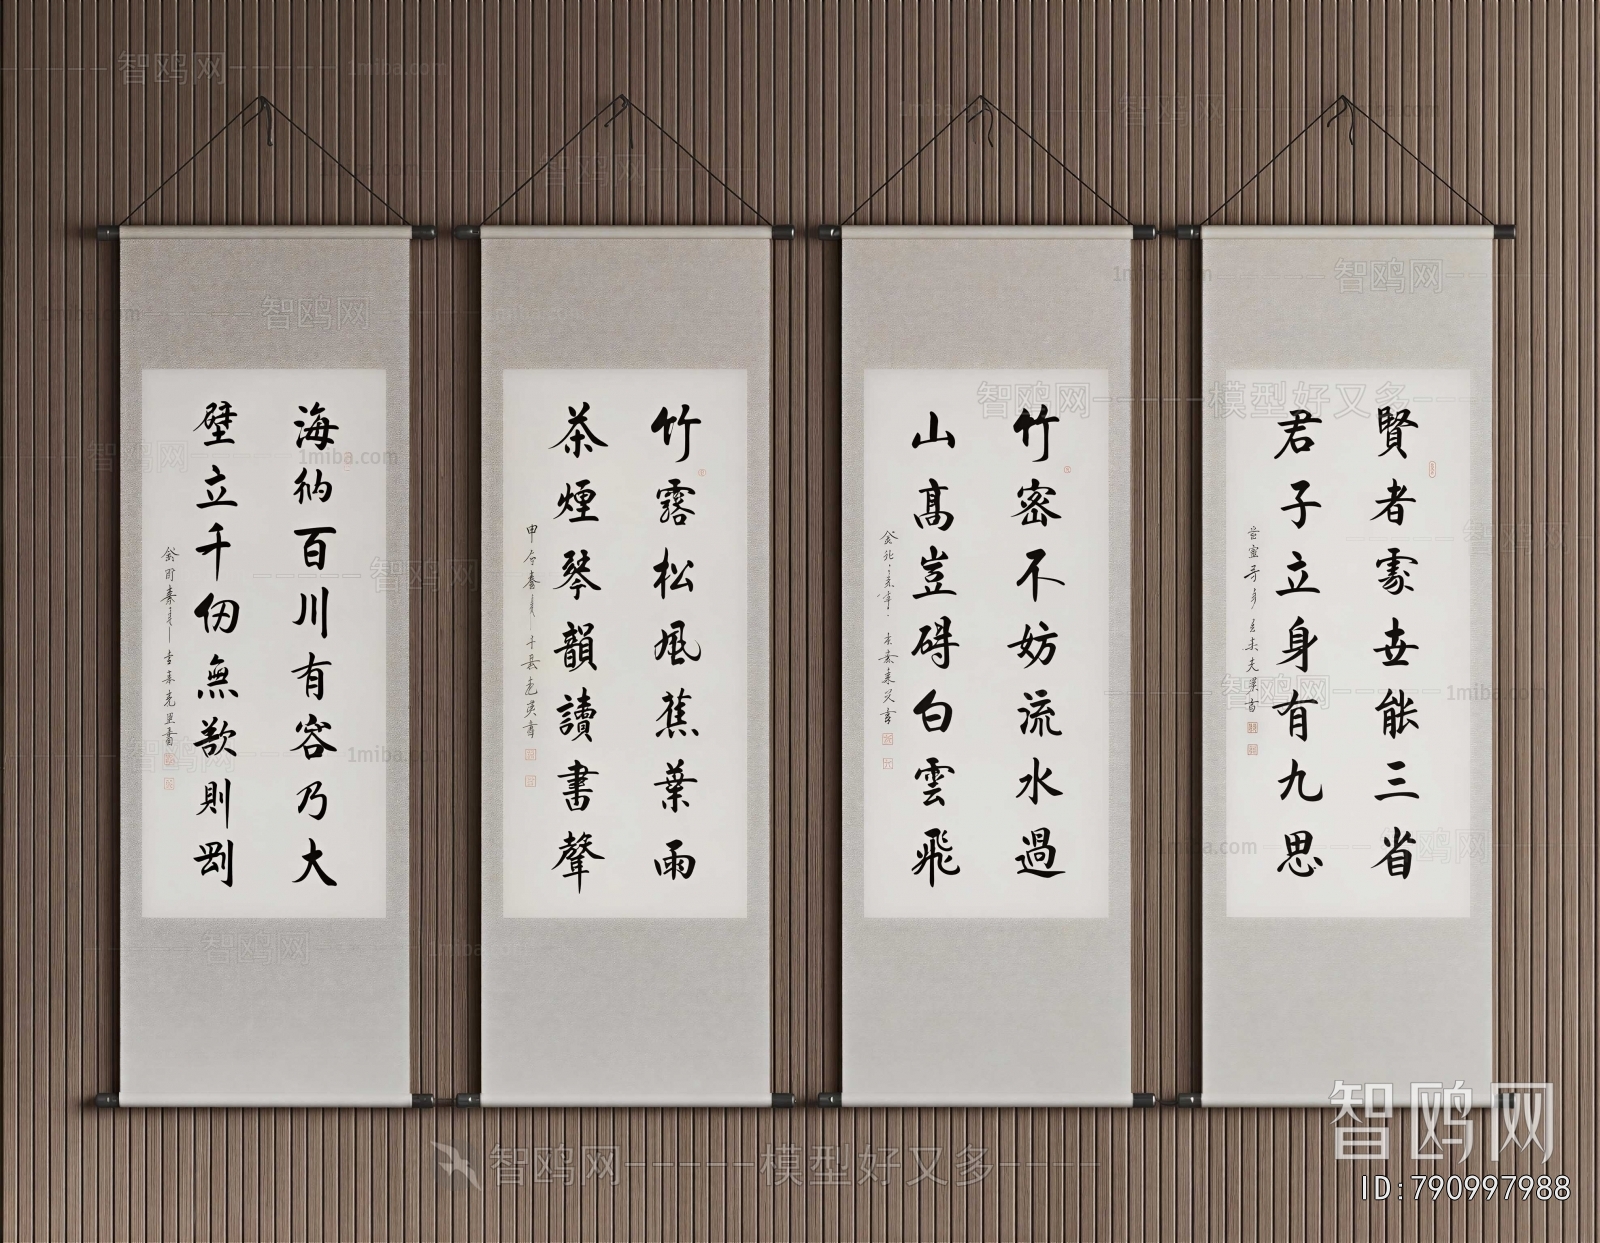 賢者處世能三省
君子立身有九思
竹密不妨流水過
山高豈碍白雲飛
竹露松風蕉葉雨
茶煙琴韻讀書聲
海納百川有容乃大
壁立千仞無欲則剛
智鸥网
模型好又多
1miba.com
智鸥网
ID:790997988